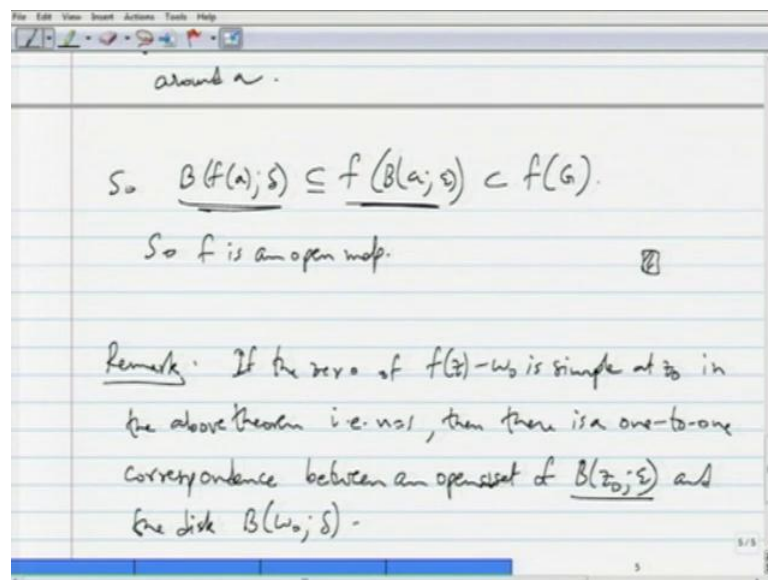 File Edit View Insert Actions Tools Help
around a.
So B(f(a); δ) ⊆ f(B(a; ε)) ⊂ f(G).
So f is an open map.
Remark. If the zero of f(z)-w₀ is simple at z₀ in
the above theorem i.e. n=1, then there is a one-to-one
correspondence between an open subset of B(z₀; ε) and
the disk B(w₀; δ).
5/5
5